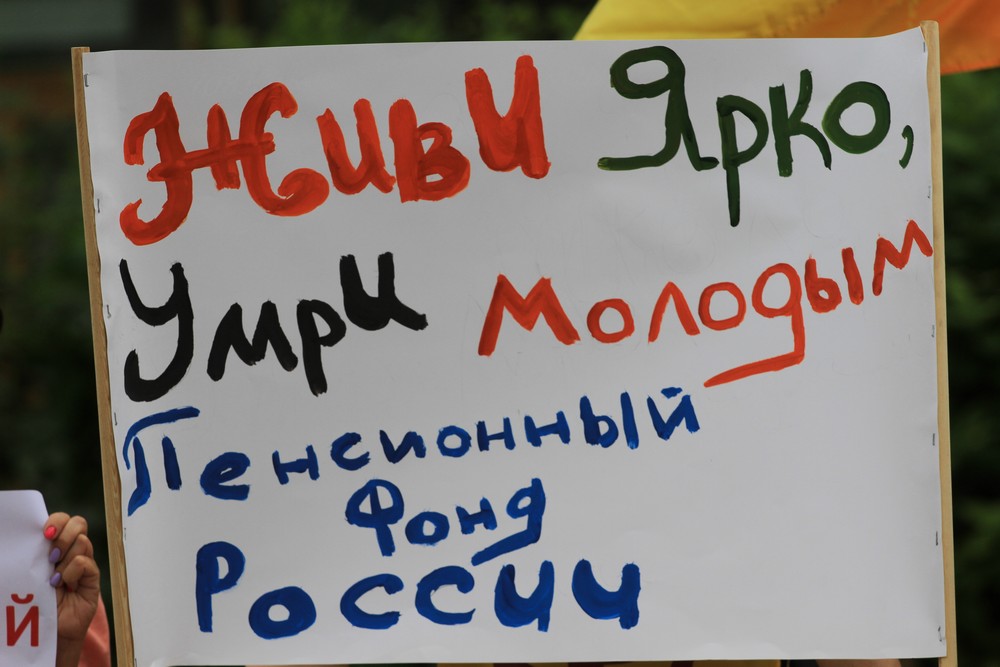 Живи Ярко,
Умри Молодым
Пенсионный
Фонд
России
Й